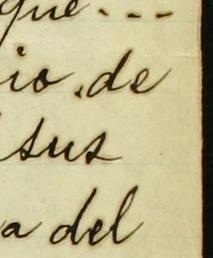 que...
io, de
sus
a del